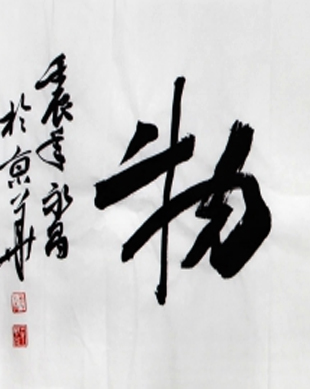 物
壬辰年永昌
於京華